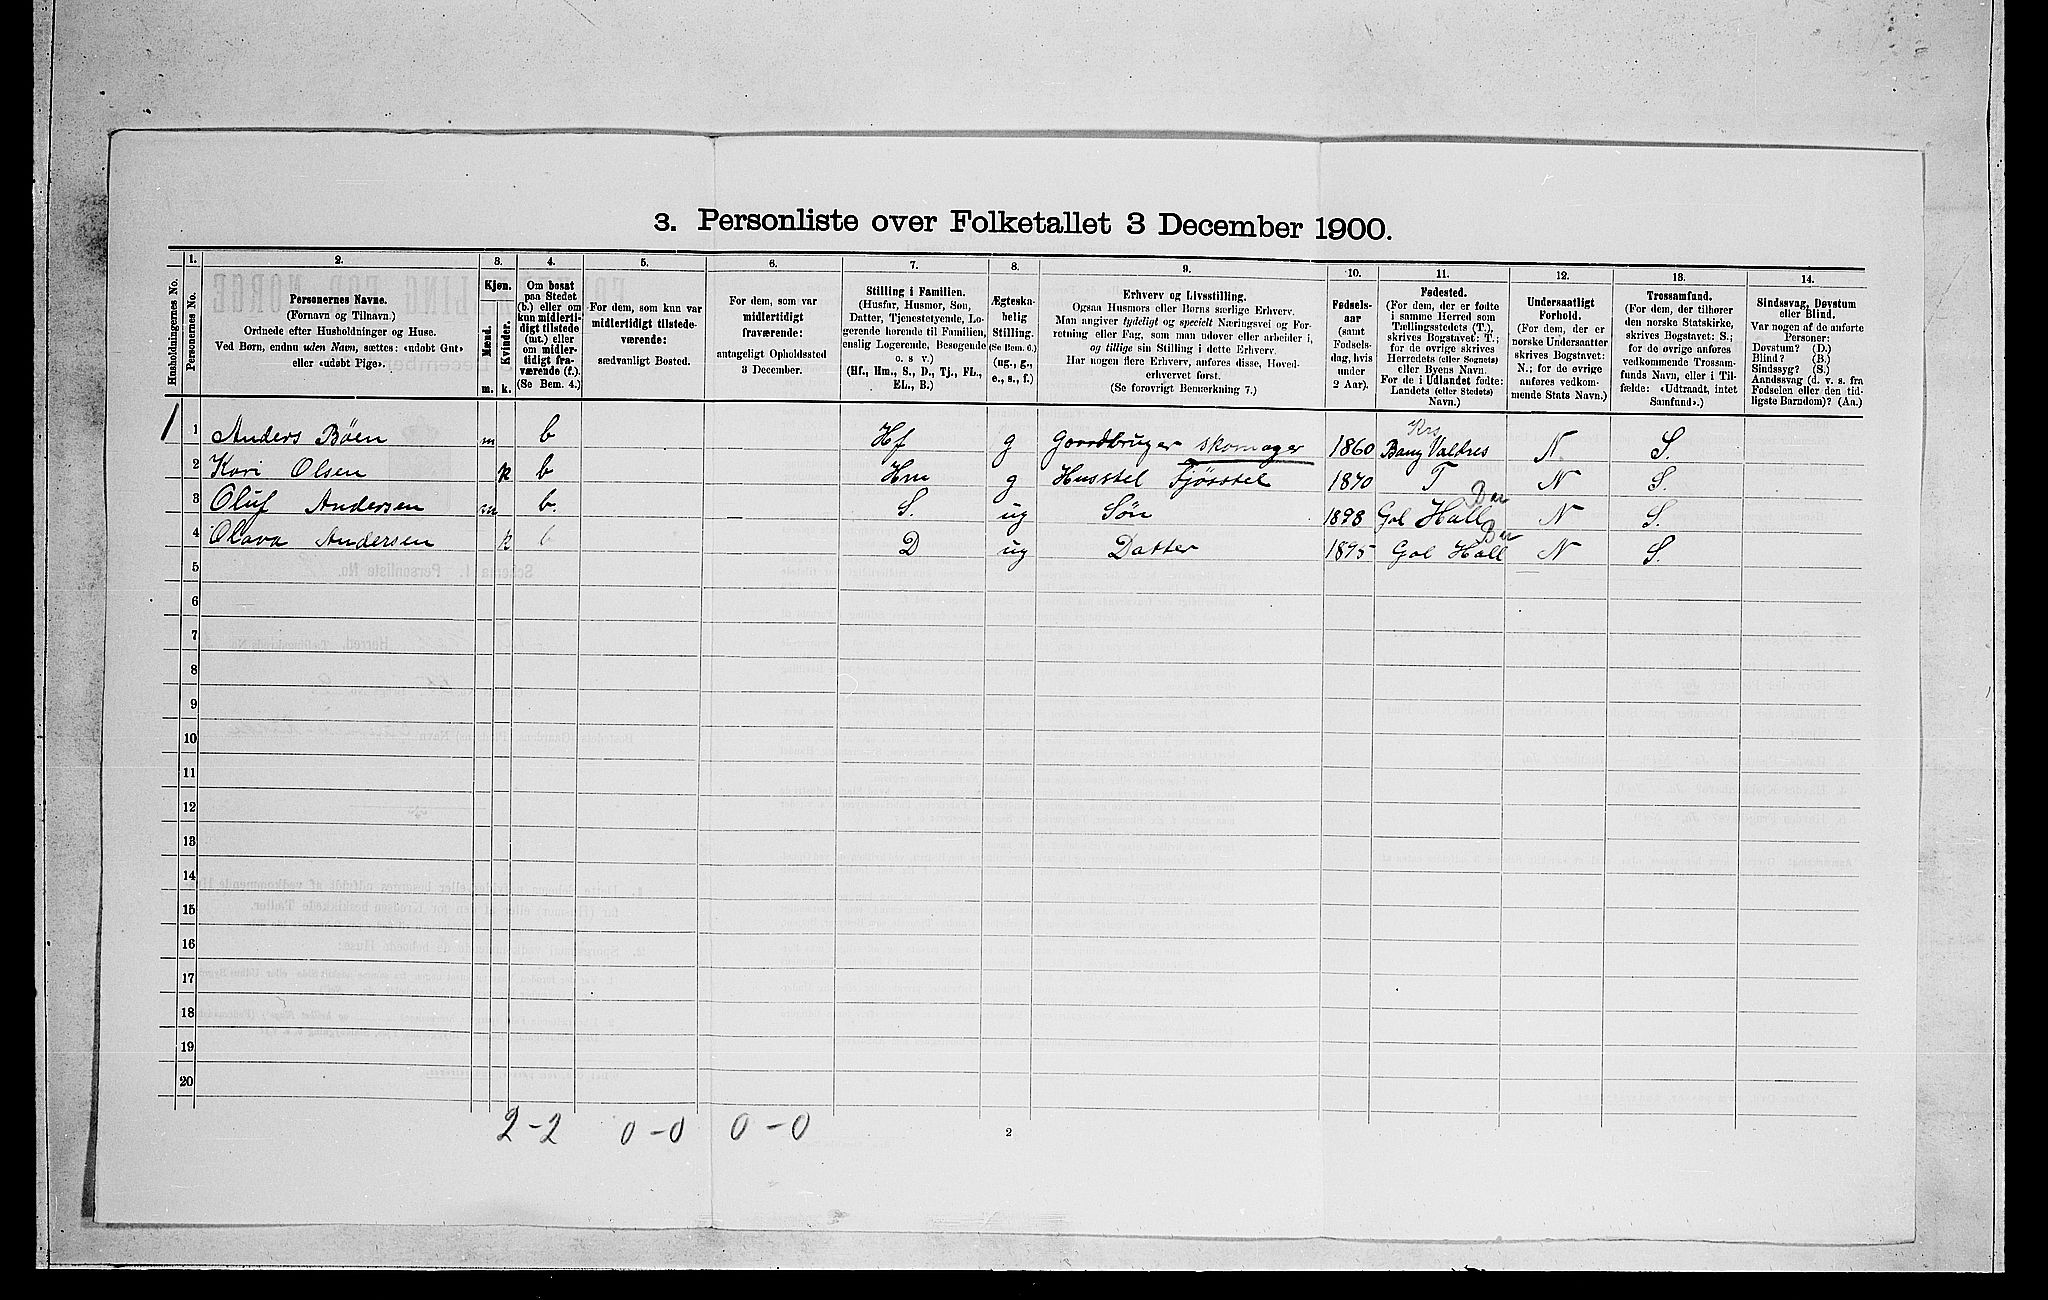 3. Personliste over Folketallet 3 December 1900.
Husholdningernes No.
1. Personernes No.
2. Personernes Navne.
(Fornavn og Tilnavn.)
Ordnede efter Husholdninger og Huse.
Ved Børn, endnu uden Navn, sættes: «udøbt Gut»
eller «udøbt Pige».
3. Kjøn.
Mænd. m.
Kvinder. k.
4. Om bosat
paa Stedet
(b.) eller om
kun midlerti-
digt tilstede
(mt.) eller
om midler-
tidigt fra-
værende (f.).
(Se Bem. 4.)
5. For dem, som kun var
midlertidigt tilstede-
værende:
sædvanligt Bosted.
6. For dem, som var
midlertidigt
fraværende:
antageligt Opholdssted
3 December.
7. Stilling i Familien.
(Husfar, Husmor, Søn,
Datter, Tjenestetyende, Lo-
gerende hørende til Familien,
enslig Logerende, Besøgende
o. s v.)
(Hf., Hm., S., D., Tj., FL.,
EL., B.)
8. Ægteska-
belig
Stilling.
(Se Bem. 6.)
(ug., g.,
e., s., f.)
9. Erhverv og Livsstilling.
Ogsaa Husmors eller Børns særlige Erhverv.
Man angiver tydeligt og specielt Næringsvei og For-
retning eller Fag, som man udøver eller arbeider i,
og tillige sin Stilling i dette Erhverv.
Har nogen flere Erhverv, anføres disse, Hoved-
erhvervet først.
(Se forøvrigt Bemerkning 7.)
10. Fødsels-
aar
(samt
Fødsels-
dag, hvis
under
2 Aar).
11. Fødested.
(For dem, der er fødte
i samme Herred som
Tællingsstedets (T.),
skrives Bogstavet: T.;
for de øvrige skrives
Herredets (eller Sognets)
eller Byens Navn.
For de i Udlandet fødte:
Landets (eller Stedets)
Navn.)
12. Undersaatligt
Forhold.
(For dem, der er
norske Undersaatter
skrives Bogstavet:
N.; for de øvrige
anføres vedkom-
mende Stats Navn.)
13. Trossamfund.
(For dem, der tilhører
den norske Statskirke,
skrives Bogstavet: S.;
for de øvrige anføres
vedkommende Trossam-
funds Navn, eller i Til-
fælde: «Udtraadt, intet
Samfund».)
14. Sindssvag, Døvstum
eller Blind.
Var nogen af de anførte
Personer:
Døvstum? (D.)
Blind? (B.)
Sindssyg? (S.)
Aandssvag (d. v. s. fra
Fødselen eller den tid-
ligste Barndom)? (Aa.)
1 1 Anders Bøen m b Hf g Gaardbruger skomager 1860 Krs Bang Valdres N S.
2 Kari Olsen k b Hm g Husstel Fjøsstel 1870 T N S.
3 Oluf Andersen m b. S. ug Søn 1898 Gol Hall N S.
4 Olava Andersen k b D ug Datter 1895 Gol Hall N S.
5
6
7
8
9
10
11
12
13
14
15
16
17
18
19
20
2-2 0-0 0-0
2